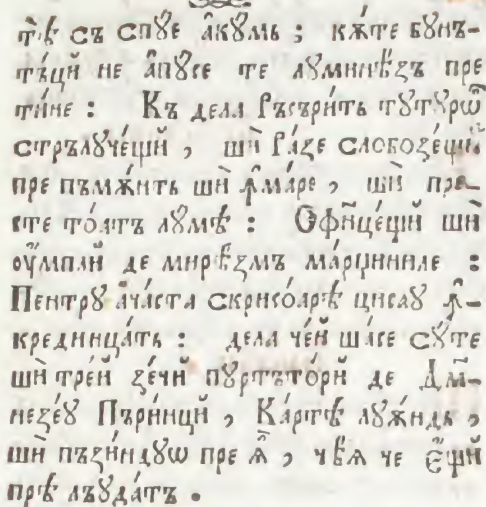 тѣ съ спꙋе а҆кꙋмь ; кѫ́те бꙋнъ-
тѫ́цй не а҆пꙋсе те лꙋминѣ́ꙁъ пре
ти́не : Къ дела Ръсъри́ть тꙋтꙋрѡ҆̀
стрълꙋче́щй , шѝ Ра́ꙁе слобоꙁе́щй
пре пъмѫ́нть шѝ ꙟ҆маре , шѝ пре-
сте то́атъ лꙋмѣ : Ѻфйце́щй шѝ
оу҆мплй де мирѣ́ꙁмъ ма́рџиниле :
Пентрꙋ а҆ча́ста скрисо́арѣ цисаꙋ ꙟ҆-
крединца́ть : дела че́й ша́се сꙋте
шѝ тре́й ꙁе́чй пꙋртъто́рй де Дм҃-
неꙁе́ꙋ Пъри́нцй , Ка́ртѣ лꙋѫ́ндь ,
шѝ пъꙁи́ндꙋѡ пре ѧ҆̀ , чѣ́ѧ че є҆́щй
прѣ лъꙋда́тъ .